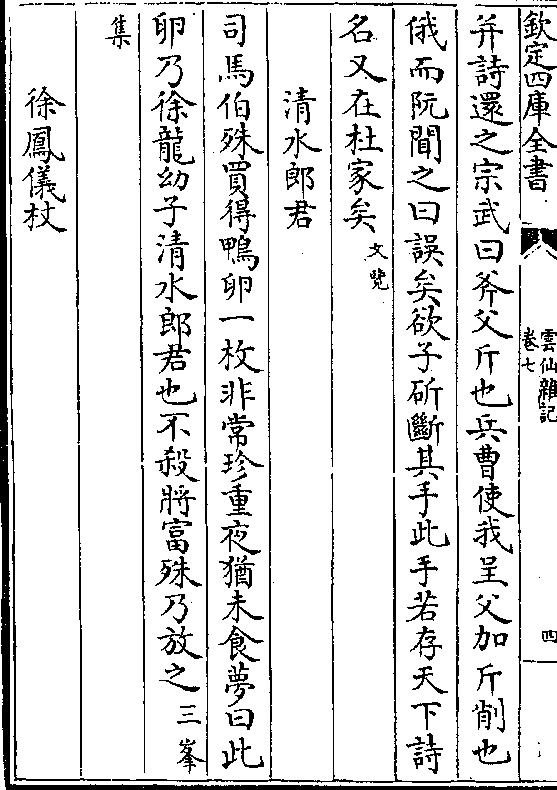 欽定四庫全書
雲仙雜記
卷七
四
并詩還之宗武曰斧父斤也兵曹使我呈父加斤削也
俄而阮聞之曰誤矣欲子斫斷其手此手若存天下詩
名又在杜家矣文覽
清水郎君
司馬伯殊買得鴨卵一枚非常珍重夜猶未食夢曰此
卵乃徐龍幼子清水郎君也不殺將富殊乃放之三峯
集
徐鳳儀杖